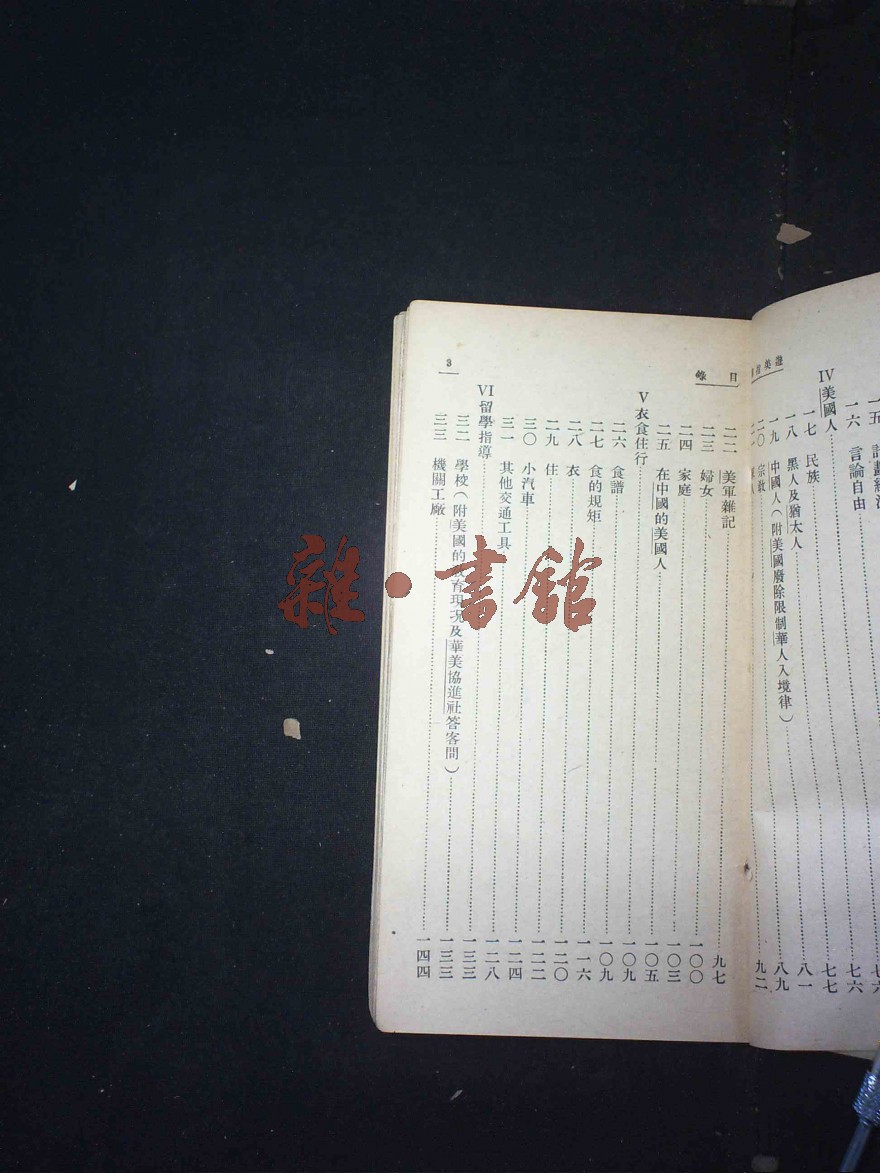 一六 言論自由
IV 美國人 七六
一七 民族 七七
一八 黑人及猶太人 八一
一九 中國人（附美國廢除限制華人入境律） 八九
二〇 宗教 九二
目錄
二二 美軍雜記 九七
二三 婦女 一〇〇
二四 家庭 一〇三
二五 在中國的美國人 一〇五
V 衣食住行 一〇九
二六 食譜 一〇九
二七 食的規矩 一一六
二八 衣 一二〇
二九 住 一二二
三〇 小汽車 一二四
三一 其他交通工具 一二八
VI 留學指導 一三三
三二 學校（附美國的教育現况及華美協進社答客問） 一三三
三三 機關工廠 一四四
3
雜·書館